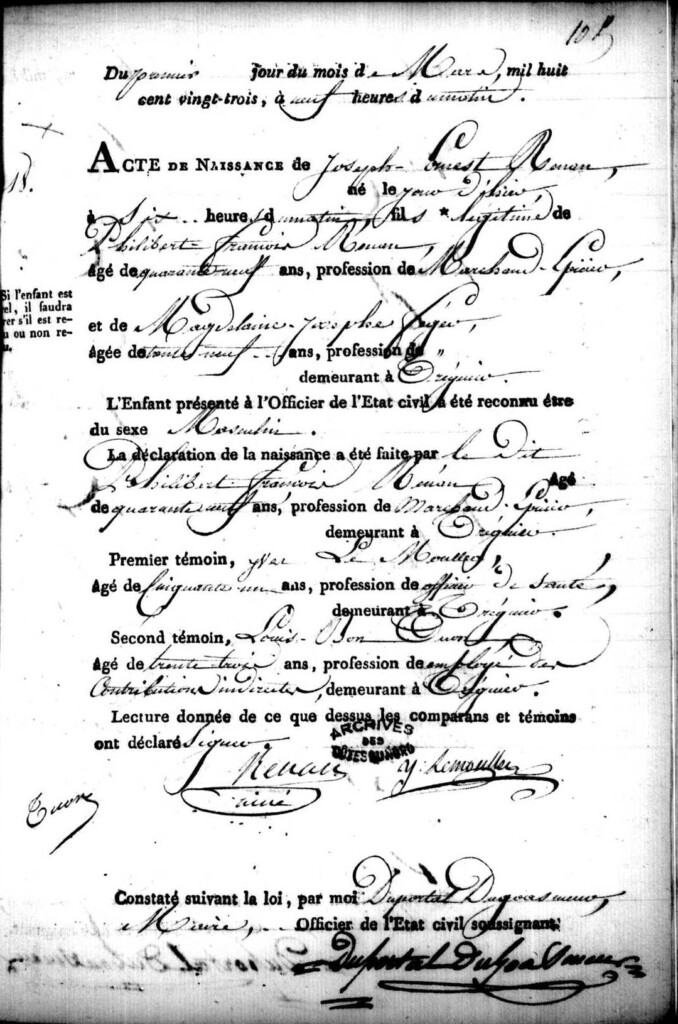 Du premier jour du mois de Mars, mil huit
cent vingt-trois, à neuf heures du matin.
ACTE DE NAISSANCE de Joseph Ernest Renan,
né le jour d'hier
à Six heures du matin, fils * légitime de
Philibert François Renan,
Agé de quarante neuf ans, profession de Marchand-Epicier,
Si l'enfant est
el, il faudra
rer s'il est re-
u ou non re-
u.
et de Magdelaine-Josephe Féger,
Agée de trente neuf ans, profession de "
demeurant à Tréguier.
L'Enfant présenté à l'Officier de l'Etat civil a été reconnu être
du sexe Masculin.
La déclaration de la naissance a été faite par le Dit
Philibert François Renan Agé
de quarante neuf ans, profession de Marchand-Epicier,
demeurant à Tréguier.
Premier témoin, yves Le Moullec,
Agé de Cinquante un ans, profession de officier de santé,
demeurant à Tréguier.
Second témoin, Louis-Bon
Agé de trente trois ans, profession de employé des
Contributions indirectes, demeurant à Tréguier.
Lecture donnée de ce que dessus, les comparans et témoins
ont déclaré Signer
ARCHIVES
DES
CÔTES DU NORD
Renan
ainé
y. Lemoullec
Constaté suivant la loi, par moi Duportal Dugoasmeur,
Maire, Officier de l'Etat civil soussignant
Duportal DuGoasmeur